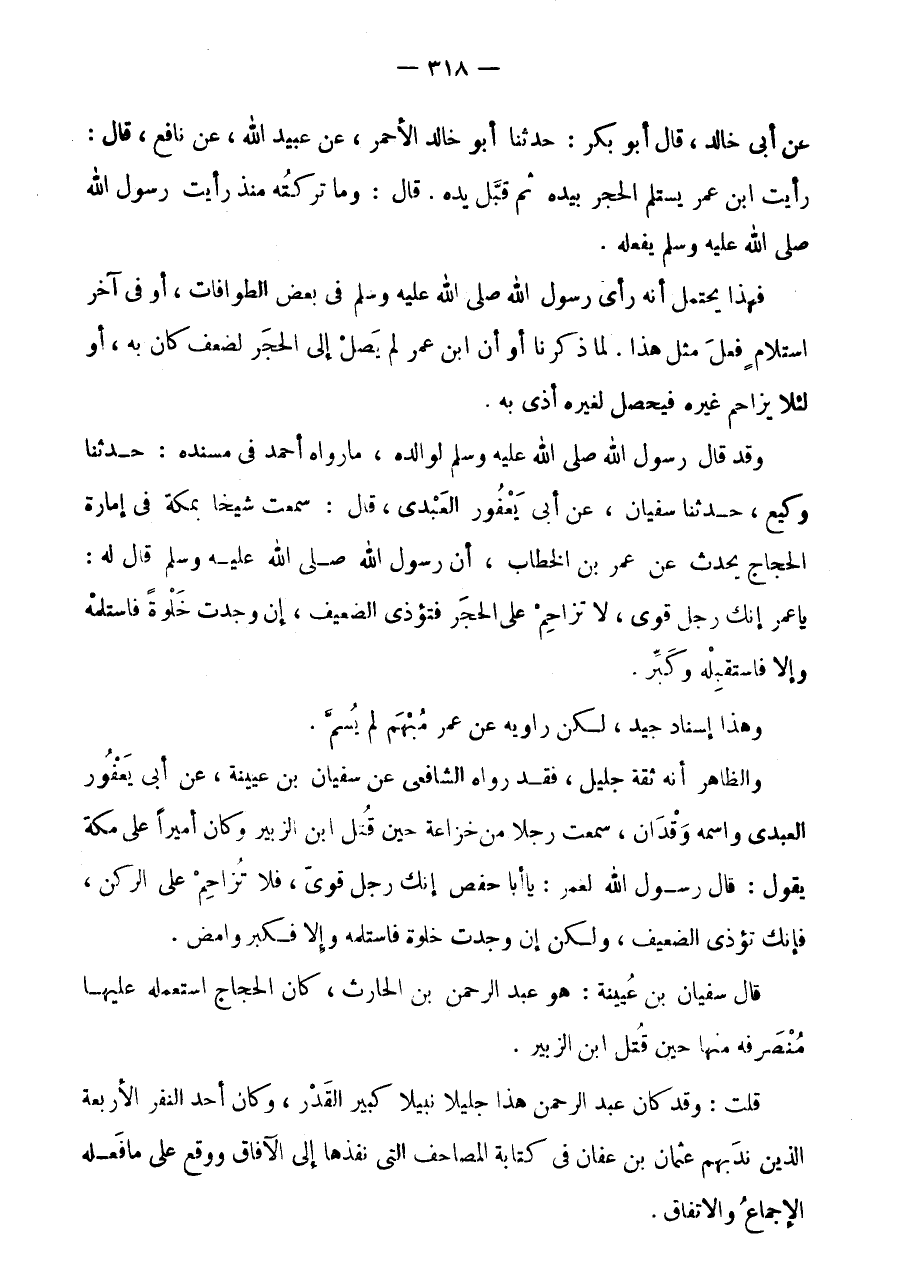 — ٣١٨ —
عن أبى خالد ، قال أبو بكر : حدثنا أبو خالد الأحمر ، عن عبيد الله ، عن نافع ، قال :
رأيت ابن عمر يستلم الحجر بيده ثم قبَّل يده . قال : وما تركتُه منذ رأيت رسول الله
صلى الله عليه وسلم يفعله .
فهذا يحتمل أنه رأى رسول الله صلى الله عليه وسلم فى بعض الطوافات ، أو فى آخر
استلامٍ فعلَ مثل هذا . لما ذكرنا أو أن ابن عمر لم يَصلْ إلى الحجَر لضعف كان به ، أو
لئلا يزاحم غيره فيحصل لغيره أذى به .
وقد قال رسول الله صلى الله عليه وسلم لوالده ، مارواه أحمد فى مسنده : حـدثنا
وكيع ، حـدثنا سفيان ، عن أبى يَعْفُور العَبْدى ، قال : سمعت شيخا بمكة فى إمارة
الحجاج يحدث عن عمر بن الخطاب ، أن رسول الله صـلى الله عليـه وسلم قال له :
ياعمر إنك رجل قوى ، لا تزاحِمْ على الحجَر فتؤذى الضعيف ، إن وجدت خَلْوةً فاستلمْه
وإلا فاستقبِلْه وكَبِّر .
وهذا إسناد جيد ، لـكن راويه عن عمر مُبْهَم لم يُسمَّ .
والظاهر أنه ثقة جليل ، فقـد رواه الشافعى عن سفيان بن عيينة ، عن أبى يَعْفُور
العبدى واسمه وَقْدَان ، سمعت رجلا من خزاعة حين قُتل ابن الزبير وكان أميراً على مكة
يقول : قال رسـول الله لعمر : ياأبا حفص إنك رجل قوىّ ، فلا تُزاحِمْ على الركن ،
فإنك تؤذى الضعيف ، ولـكن إن وجدت خلوة فاستلمه وإلا فـكبر وامض .
قال سفيان بن عُيينة : هو عبد الرحمن بن الحارث ، كان الحجاج استعمله عليهـا
مُنْصَرفه منها حين قُتل ابن الزبير .
قلت : وقد كان عبد الرحمن هذا جليلا نبيلا كبير القَدْر ، وكان أحد النفر الأربعة
الذين ندَبهم عثمان بن عفان فى كتابة المصاحف التى نفذها إلى الآفاق ووقع على مافَعـله
الإجماعُ والاتفاق .